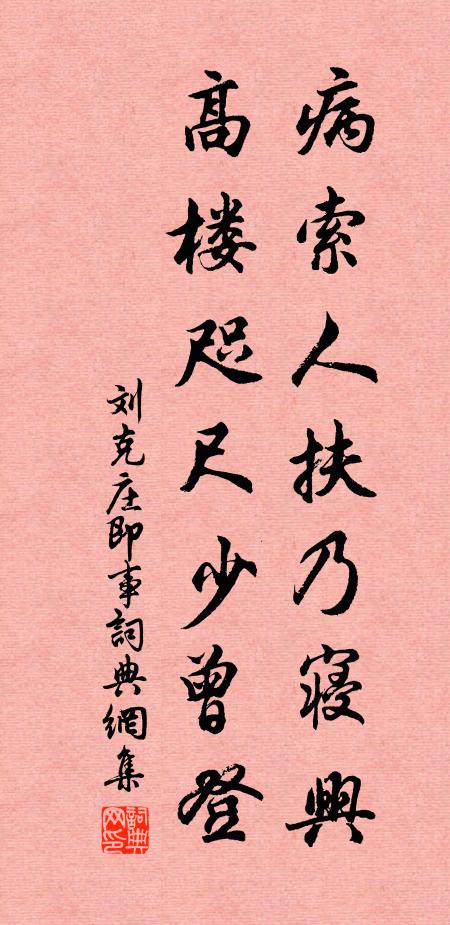 病索人扶乃寝興
高楼咫尺少曾登
刘克庄即事詞典網集
詞典网印